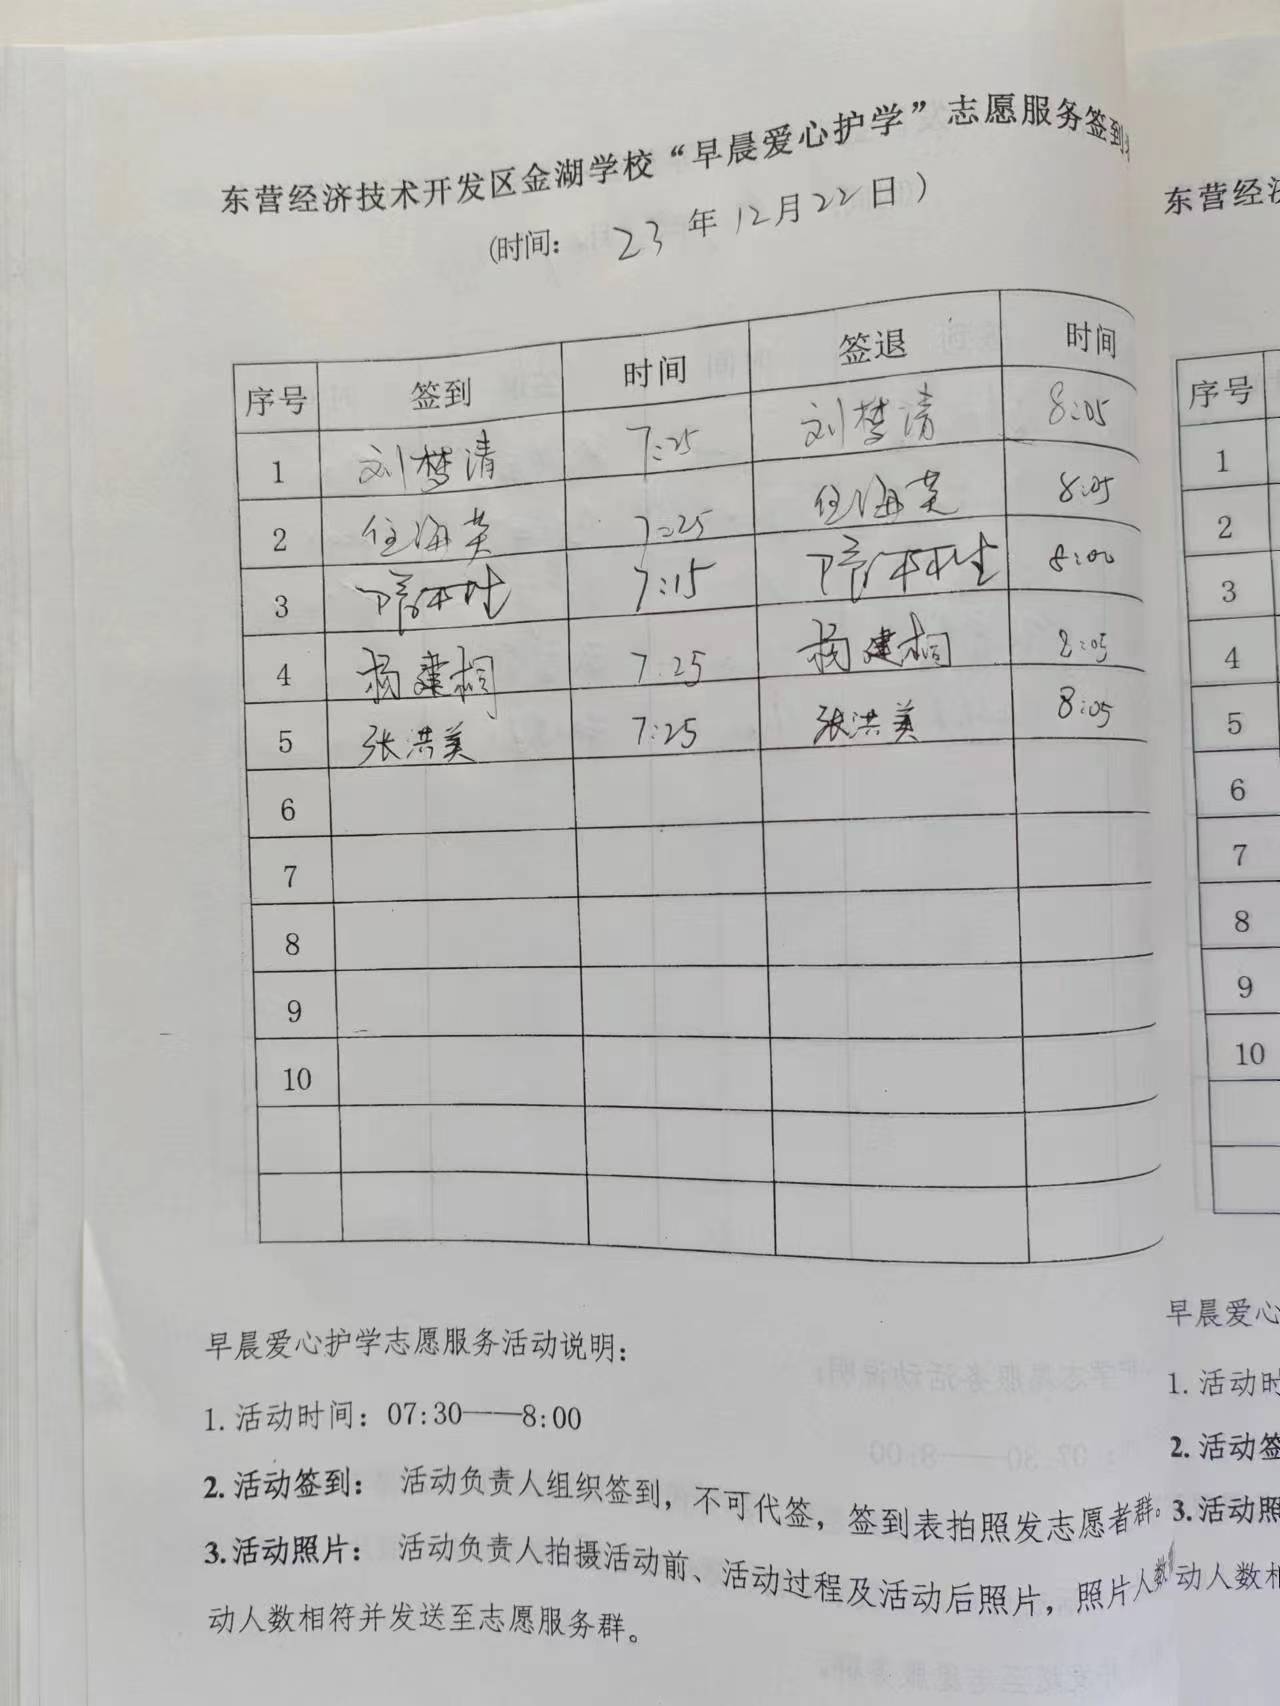 东营经济技术开发区金湖学校“早晨爱心护学”志愿服务签到
(时间： 23年12月22日)
序号 签到 时间 签退 时间
1 刘梦清 7:25 刘梦清 8:05
2 任海英 7:25 任海英 8:05
3 7:15 8:00
4 杨建桐 7:25 杨建桐 8:05
5 张洪美 7:25 张洪美 8:05
6
7
8
9
10
早晨爱心护学志愿服务活动说明：
1. 活动时间：07:30——8:00
2. 活动签到： 活动负责人组织签到，不可代签，签到表拍照发志愿者群。
3. 活动照片： 活动负责人拍摄活动前、活动过程及活动后照片，照片人数
动人数相符并发送至志愿服务群。
东营经济
序号
1
2
3
4
5
6
7
8
9
10
早晨爱心
1. 活动时
2. 活动签
3. 活动照
动人数相